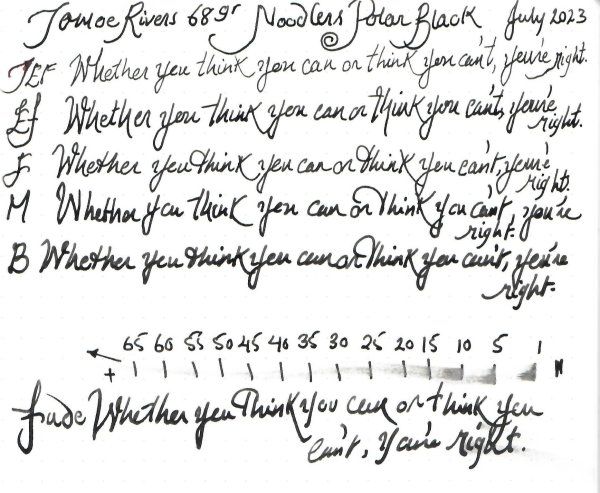 Tomoe Rivers 68gr Noodlers Polar Black July 2023
JEF Whether you think you can or think you can't, you're right.
Ef Whether you think you can or think you can't, you're right.
F Whether you think you can or think you can't, you're right.
M Whether you think you can or think you can't, you're right.
B Whether you think you can or think you can't, you're right.
65 60 55 50 45 40 35 30 25 20 15 10 5 1
+
fude Whether you think you can or think you
can't, you're right.